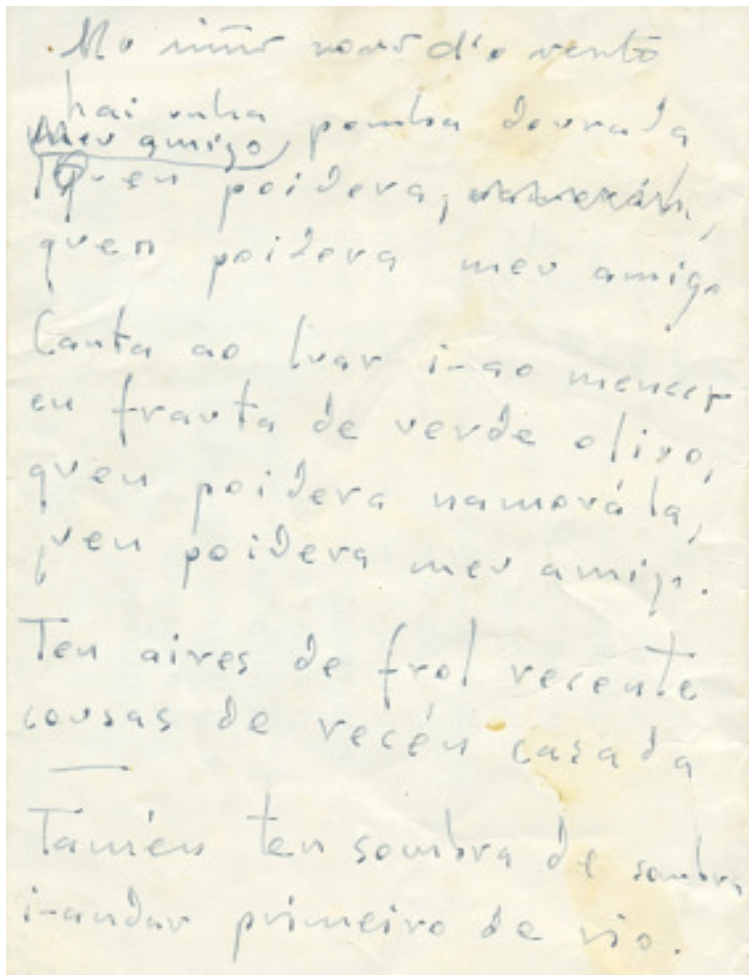 No niño novo d'o vento
hai unha pomba dourada
Meu amigo
Quen poidera,
quen poidera meu amigo
Canta ao luar i-ao mencer
en frauta de verde olivo,
quen poidera namorála,
quen poidera meu amigo.
Ten aires de frol recente
cousas de recén casada
Tamén ten sombra de sombra
i-andar primeiro de rio.